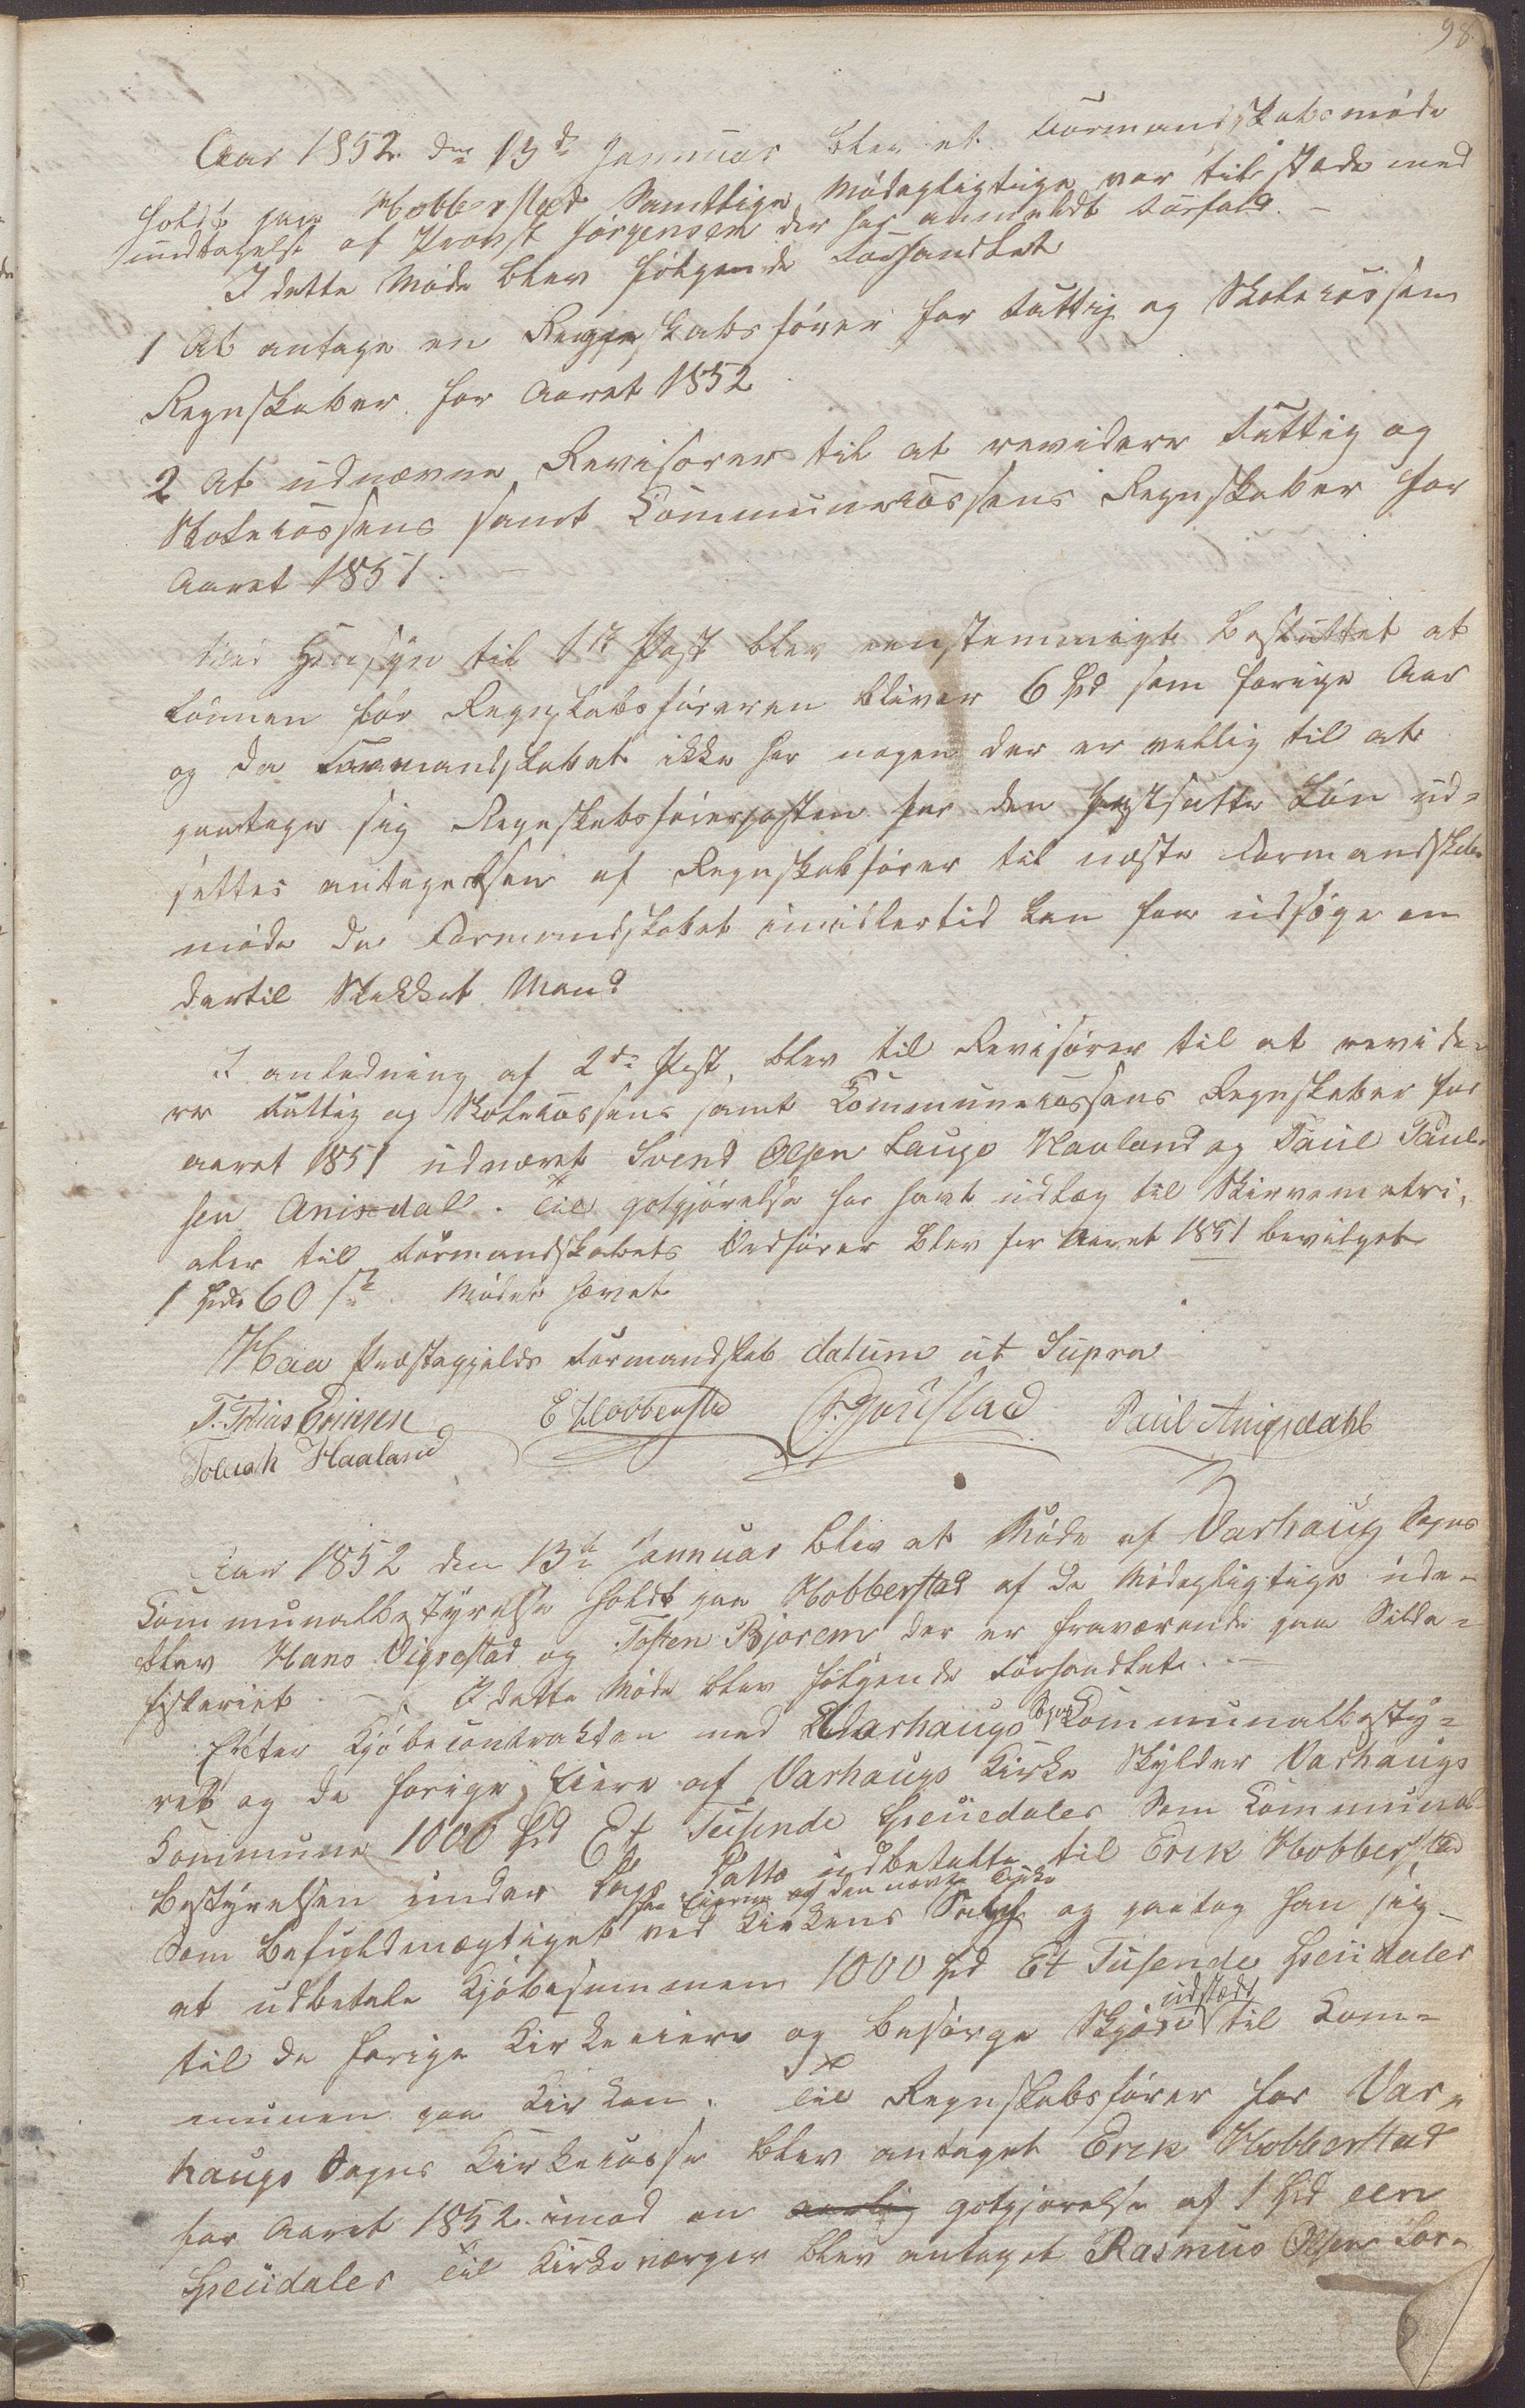 98.
Aar 1852 den 13de Januar blev et Formandskabsmøde
holdt paa Hobberstad Samtlige Mødepligtige var tilstede med
undtagelse af Provst Jørgensen der har anmeldt Forfald. -
I dette Møde blev følgende Forhandlet
1 At antage en Regnskabsfører for Fattig og Skolecassens
Regnskaber for Aaret 1852
2 At udnævne Revisorer til at revidere Fattig og
Skolecassens samt Communecassens Regnskaber for
Aaret 1851. -
Med Hensyn til 1ste Post blev eenstemmigt Besluttet at
Lønnen for Regnskabsføreren bliver 6 Spd som forige Aar
og da Formandskabet ikke har nogen der er villig til at
paatage sig Regnskabsførerposten for den fastsatte Løn ud-
settes antagelsen af Regnskabsfører til næste Formandskabs
møde da Formandskabet imidlertid kan faa udsøge en
dertil Skikket Mand
I anledning af 2den Post, blev til Revisorer til at revide-
re Fattig og Skolecassens samt Communecassens Regnskaber for
aaret 1851 udnævnt Svend Olsen Lauge Haaland og Paul Paul-
sen Anisdall. Til godtgjørelse for havt udlæg til Skrivematri-
aler til Formandskabets Ordfører blev for Aaret 1851 bevilget
1 Spd 60 s Mødet hævet
Haa Præstegjelds Formandskab datum ut Supra
T. Tobias Eriksen E Hobberstad Gjøustad Paul Anisdahl
Tollak Haaland
Aar 1852 den 13de Januar blev et Møde af Varhaug Sogns
Communalbestyrelse holdt paa Hobberstad af de Mødepligtige ude-
blev Hans Vigrestad og Tosten Bjorem der er fraværende paa Silde-
fiskeriet. - I dette Møde blev følgende Forhandlet. -
Efter Kjøbecontrakten med Varhaugs Sogns Communalbesty-
relse og de forige Eiere af Varhaugs Kirke Skylder Varhaugs
Commune 1000 Spd Et Tusende Speciedaler Som Communal-
bestyrelsen under Dags Datto udbetalte til Erik Hobberstad
fra Eierne af den nævte Kirke
Som Befuldmægtiget ved Kirkens Salg og paatog han sig
at udbetale Kjøbesummen 1000 Spd Et Tusende Speciedaler
udstædt
til de forige Kirkeeiere og besørge Skjøde til Com-
munen paa Kirken. Til Regnskabsfører for Var-
haugs Sogns Kirkecasse blev antaget Erik Hobberstad
for Aaret 1852 imod en aarlig godtgjørelse af 1 Spd een
Speciedaler Til Kirkeværger blev antaget Rasmus Olsen Lor-